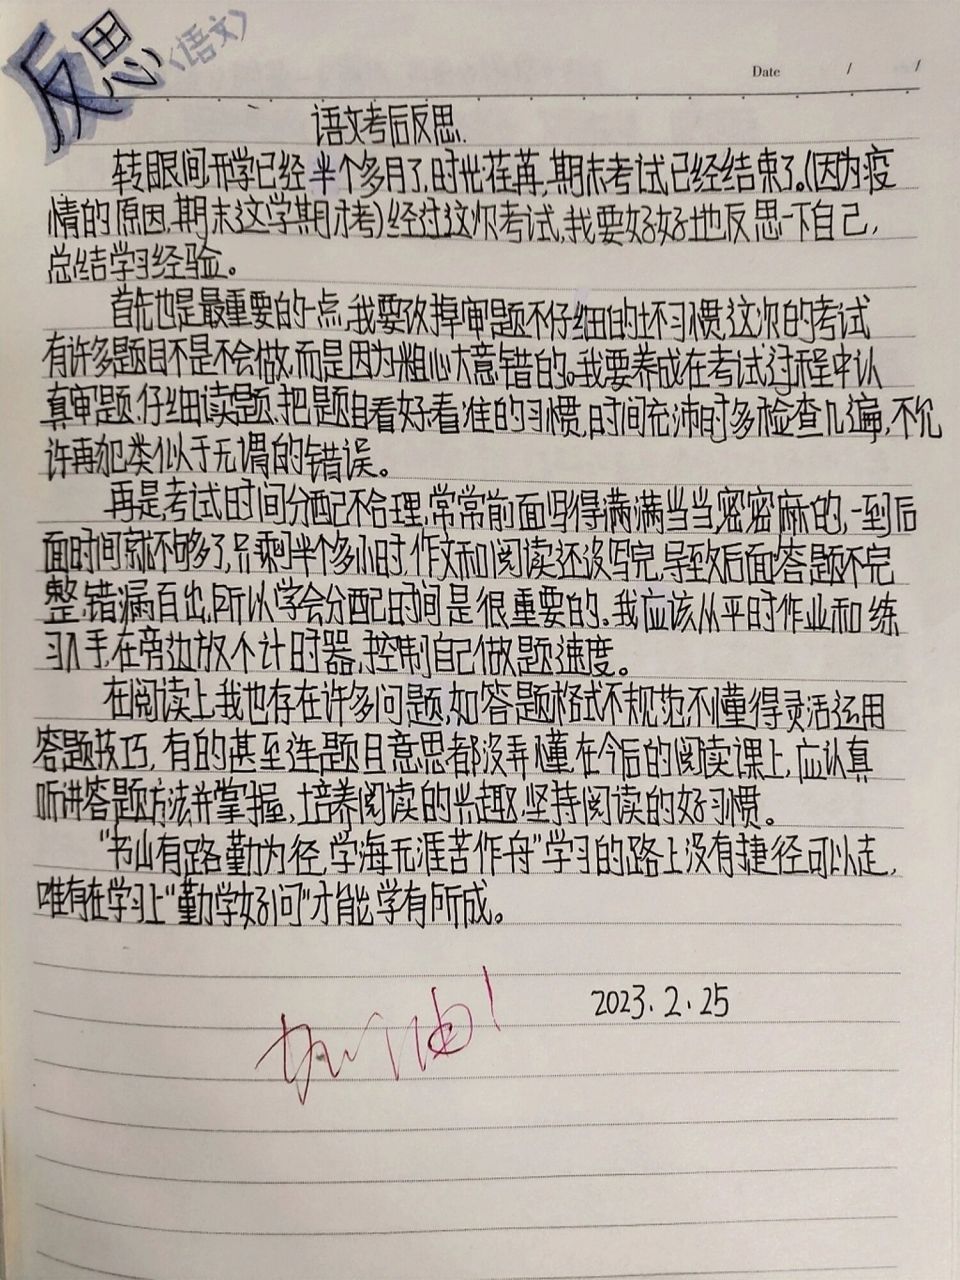 反思〈语文〉
Date / /
语文考后反思.
转眼间,开学已经半个多月了,时光荏苒,期末考试已经结束了。(因为疫
情的原因,期末这学期才考)经过这次考试,我要好好地反思一下自己,
总结学习经验。
首先也是最重要的一点,我要改掉审题不仔细的坏习惯,这次的考试
有许多题目不是不会做,而是因为粗心大意错的。我要养成在考试过程中认
真审题、仔细读题、把题目看好看准的习惯,时间充沛时多检查几遍,不允
许再犯类似于无谓的错误。
再是考试时间分配不合理,常常前面写得满满当当,密密麻的,一到后
面时间就不够了,只剩半个多小时,作文和阅读还没写完,导致后面答题不完
整,错漏百出,所以学会分配时间是很重要的。我应该从平时作业和练
习入手,在旁边放个计时器,控制自己做题速度。
在阅读上我也存在许多问题,如答题格式不规范,不懂得灵活运用
答题技巧,有的甚至连题目意思都没弄懂,在今后的阅读课上,应认真
听讲答题方法并掌握,培养阅读的兴趣,坚持阅读的好习惯。
“书山有路勤为径,学海无涯苦作舟”学习的路上没有捷径可以走,
唯有在学习上“勤学好问”才能学有所成。
2023.2.25
加油!